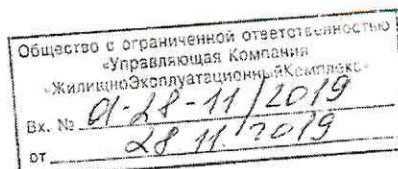 Общество с ограниченной ответственностью
«Управляющая Компания
«ЖилищноЭксплуатационныйКомплекс»
Вх. № 01-28-11/2019
от 28.11.2019